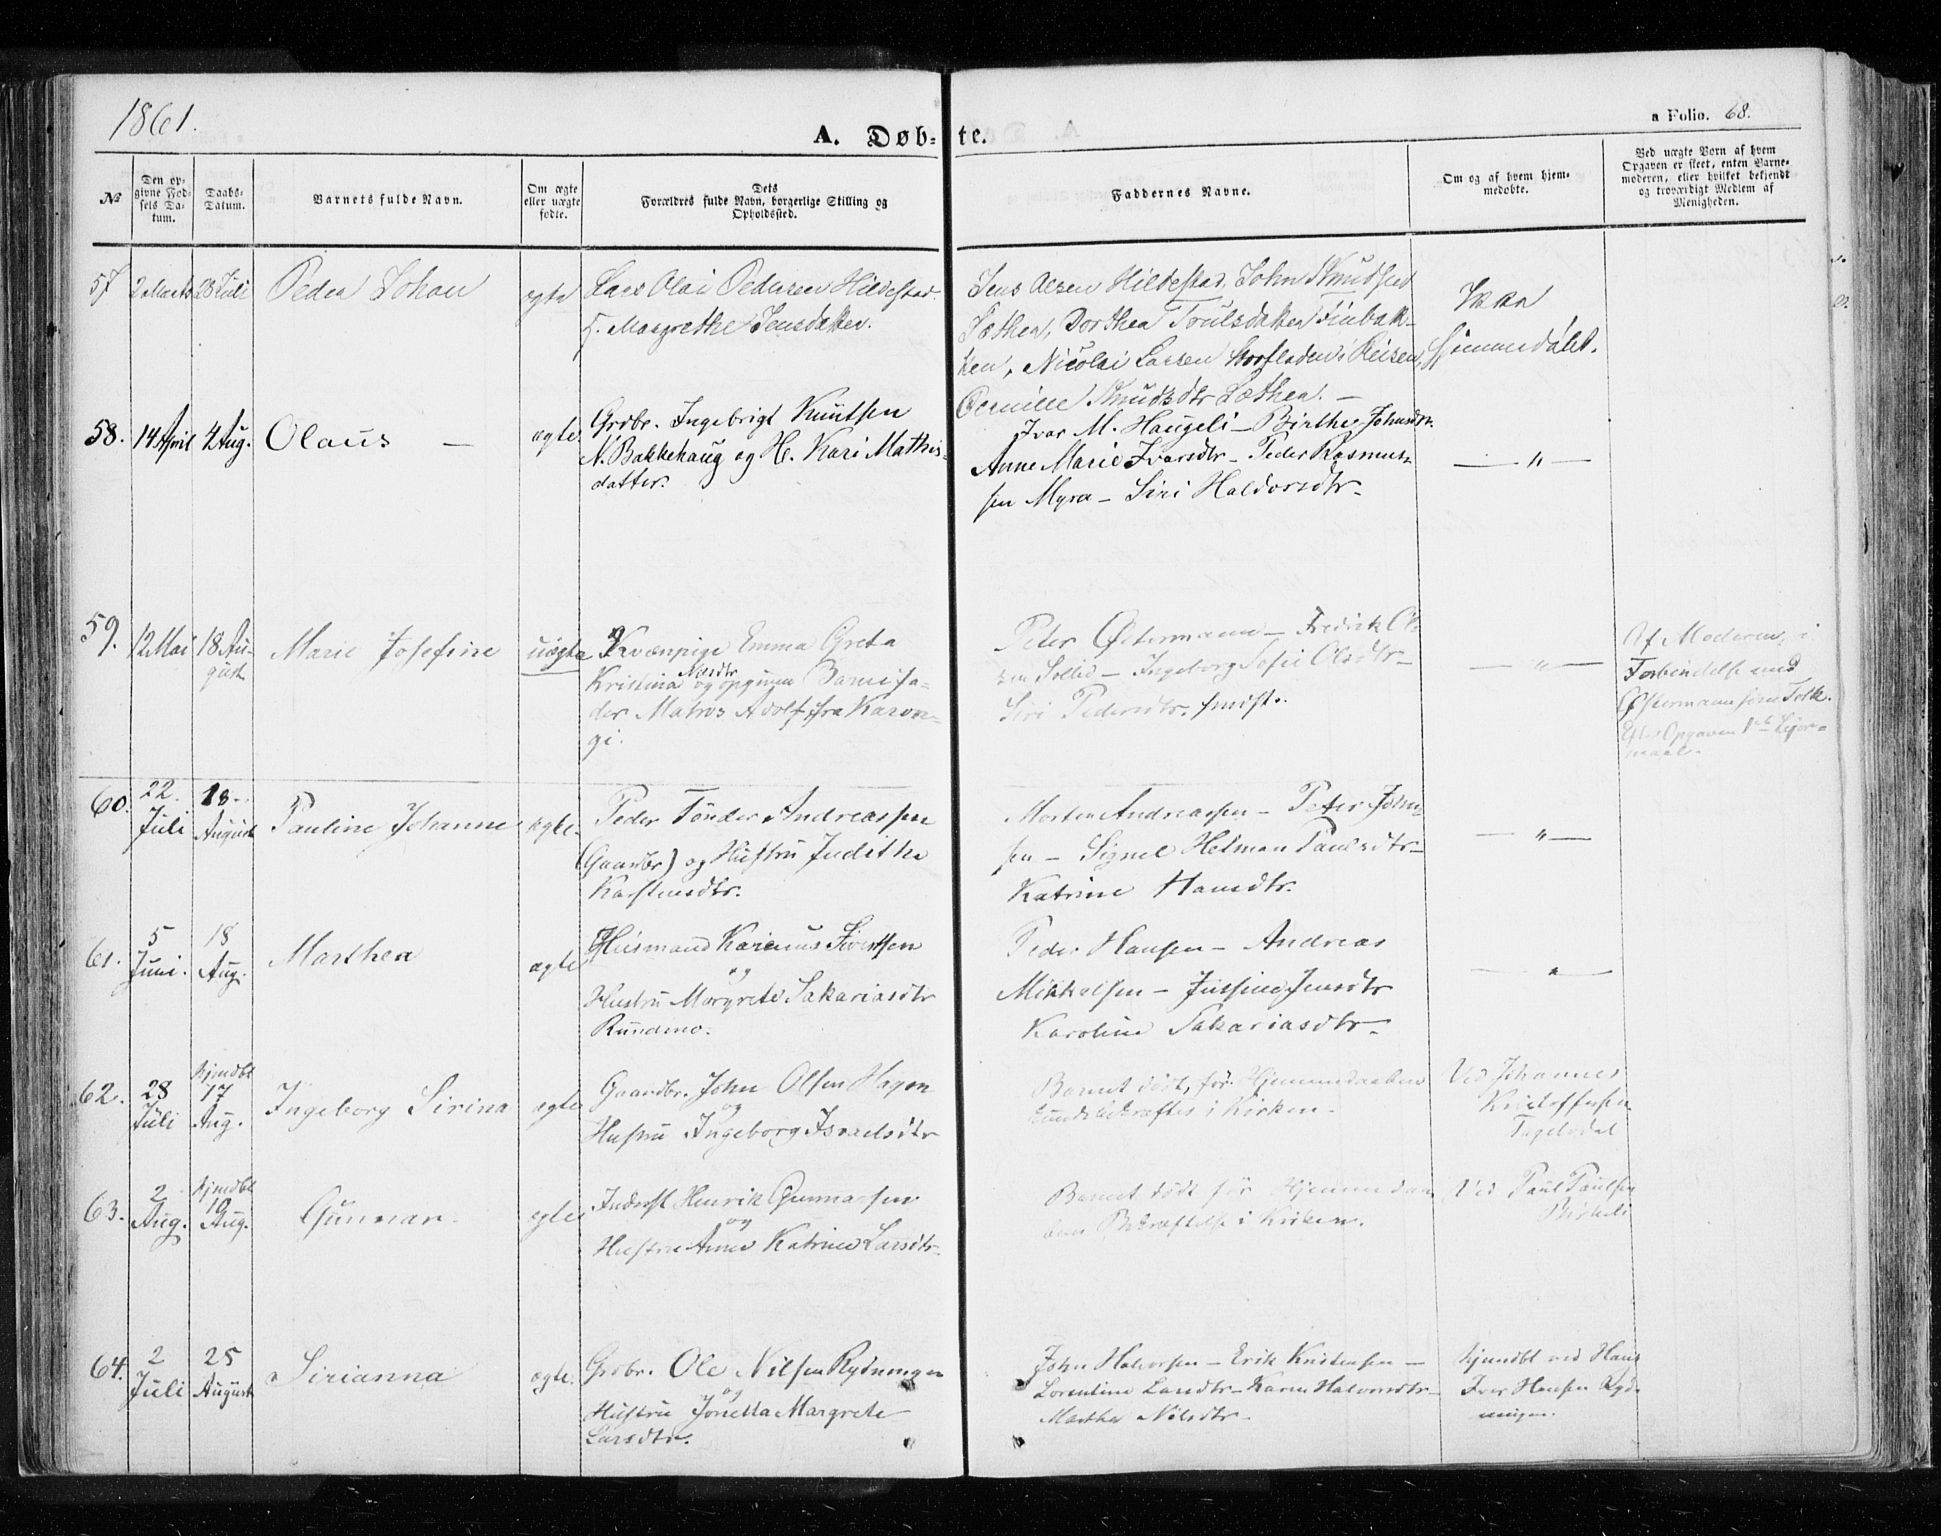 1861.
A. Døb-te.
a Folio. 68.
№
Den opgivne Fødsels Datum.
Daabs-Datum.
Barnets fulde Navn.
Om ægte eller uægte fødte.
Dets Forældres fulde Navn, borgerlige Stilling og Opholdssted.
Faddernes Navne.
Om og af hvem hjemmedøbte.
Ved uægte Børn af hvem Opgaven er skeet, enten Barnemoderen, eller hvilket bekjendt og troværdigt Medlem af Menigheden.
57
2 Marts
28 Juli
Peder Johan
egte
Lars Olai Pedersen Hildestad
Margrethe Jensdatter.
Jens Olsen Hildestad, John Knudsen
Sæther, Dorthea Truulsdatter Finbak-
ken, Nicolai Larsen Reisen
Pernille Knudsdtr Sæther. –
Ikke
hjemmedøbt.
58.
14 April
4 Aug.
Olaus –
ægte
Grdbr. Ingebrigt Knutsen
N. Bakkehaug og H. Kari Mathis-
datter.
Ivar M. Haugeli – Birthe Johnsdtr.
Anne Marie Ivarsdtr – Peder Rasmus-
sen Myra – Siri Haldorsdtr –
— " —
59.
12 Mai
18 Au-
gust
Marie Josefine
uægte
Kvænpige Emma Greta
Kristina Nilsdtr og opgiven Barnefa-
der Matros Adolf, fra Karun-
gi.
Peter Østermann – Fredrik Ol-
sen Sollid – Ingeborg Sofie Olsdtr –
Siri Pedersdtr.
— " —
Af Moderen, i
Forbindelse med
Østermann som Tolk.
Opgaven 1ste Leier-
maal.
60.
22.
Juli
18.
August
Pauline Johanne
ægte.
Peder Tønder Andreassen
(Gaardbr) og Hustru Judithe
Karstensdtr.
Morten Andreassen – Peter John-
sen – Signel Helman Paulsdtr –
Katrine Hansdtr.
— " —
61.
5
Juni.
18
Aug.
Marthea
ægte
Husmand Karinus Sivertsen
og
Hustru Margrete Sakariasdtr
Rundmo.
Peder Hansen – Andreas
Mikkelsen – Jensdtr
Karoline Sakariasdtr –
— " —
62.
28
Juli
hjemdbt
17
Aug.
Ingeborg Sirina
ægte
Gaardbr. John Olsen Hagen
og
Hustru Ingeborg Israelsdtr
Barnet dødt, før Hjemmedaaben
kunde bekræftes i Kirken –
Ved Johannes
Kristoffersen
63.
2
Aug.
hjmdbt
10
Aug.
Gunnar.
egte
Inderst Henrik Gunnarsen
og
Hustru Anne Katrine Larsdtr.
Barnet dødt før Hjemmedaa-
bens Bekræftelse i Kirken.
Ved Paul Paulsen
64.
2
Juli
25
August
Sirianna
ægte.
Grdbr. Ole Nilsen Rydningen
og
Hustru Jonetta Margrete
Larsdtr.
John Halvorsen – Erik Kristensen –
Lorentine Larsdtr – Karen Halvorsdtr –
Marthe Nilsdtr –
hjemdbt ved Hans
Iver Hansen Ryd-
ningen.